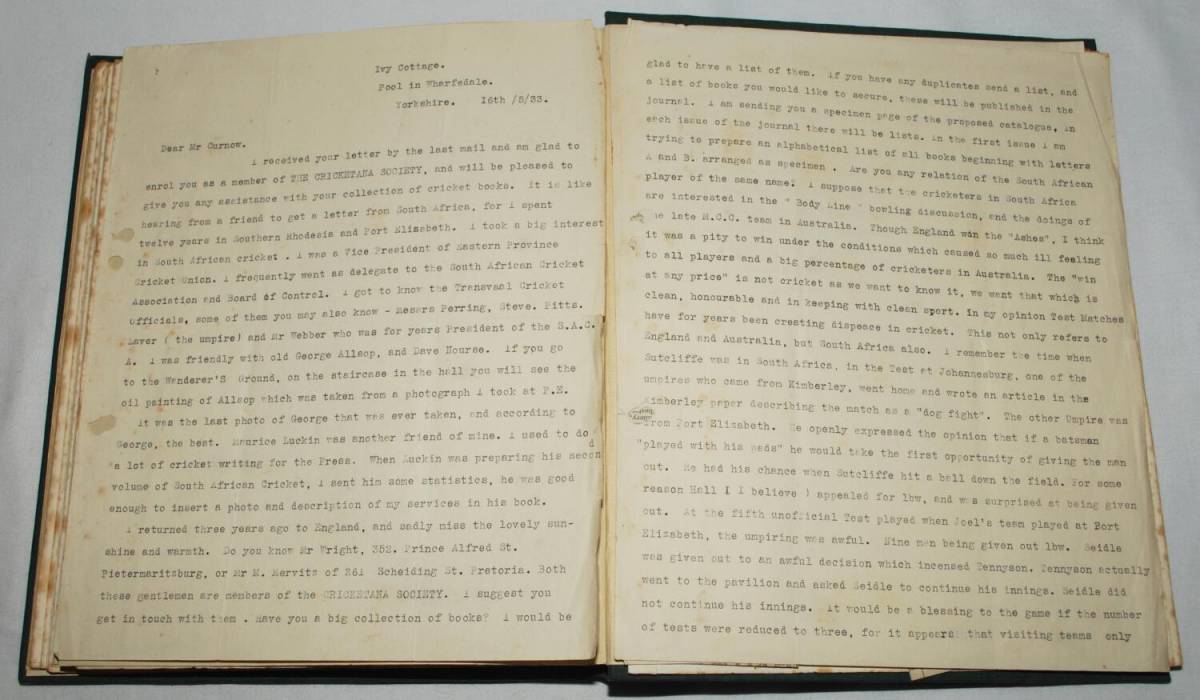 Ivy Cottage.
Pool in Wharfedale.
Yorkshire. 16th /5/33.
Dear Mr Curnow.
I received your letter by the last mail and am glad to
enrol you as a member of THE CRICKETANA SOCIETY, and will be pleased to
give you any assistance with your collection of cricket books. It is like
hearing from a friend to get a letter from South Africa, for I spent
twelve years in Southern Rhodesia and Port Elizabeth. I took a big interest
in South African cricket . I was a Vice President of Eastern Province
Cricket Union. I frequently went as delegate to the South African Cricket
Association and Board of Control. I got to know the Transvaal Cricket
Officials, some of them you may also know - messrs Perring, Steve. Pitts.
Laver ( the umpire) and Mr Webber who was for years President of the S.A.C.
A. I was friendly with old George Allsop, and Dave Nourse. If you go
to the Wanderer'S Ground, on the staircase in the hall you will see the
oil painting of Allsop which was taken from a photograph I took at P.E.
It was the last photo of George that was ever taken, and according to
George, the best. Maurice Luckin was another friend of mine. I used to do
a lot of cricket writing for the Press. When Luckin was preparing his second
volume of South African Cricket, I sent him some statistics, he was good
enough to insert a photo and description of my services in his book.
I returned three years ago to England, and sadly miss the lovely sun-
shine and warmth. Do you know Mr Wright, 352. Prince Alfred St.
Pietermaritzburg, or Mr M. Mervitz of 261 Scheiding St. Pretoria. Both
these gentlemen are members of the CRICKETANA SOCIETY. I suggest you
get in touch with them . Have you a big collection of books? I would be
glad to have a list of them. If you have any duplicates send a list, and
a list of books you would like to secure, these will be published in the
journal. I am sending you a specimen page of the proposed catalogue, in
each issue of the journal there will be lists. In the first issue I am
trying to prepare an alphabetical list of all books beginning with letters
A and B. arranged as specimen . Are you any relation of the South African
player of the same name? I suppose that the cricketers in South Africa
are interested in the " Body Line " bowling discussion, and the doings of
he late M.C.C. team in Australia. Though England won the "Ashes", I think
it was a pity to win under the conditions which caused so much ill feeling
to all players and a big percentage of cricketers in Australia. The "win
at any price" is not cricket as we want to know it, we want that which is
clean, honourable and in keeping with clean sport. In my opinion Test Matches
have for years been creating dispeace in cricket. This not only refers to
England and Australia, but South Africa also. I remember the time when
Sutcliffe was in South Africa, in the Test at Johannesburg, one of the
umpires who came from Kimberley, went home and wrote an article in the
Kimberley paper describing the match as a "dog fight". The other Umpire was
from Port Elizabeth. He openly expressed the opinion that if a batsman
"played with his pads" he would take the first opportunity of giving the man
out. He had his chance when Sutcliffe hit a ball down the field. For some
reason Hall ( I believe ) appealed for lbw, and was surprised at being given
out. At the fifth unofficial Test played when Joel's team played at Port
Elizabeth, the umpiring was awful. Nine men being given out lbw. Seidle
was given out to an awful decision which incensed Tennyson. Tennyson actually
went to the pavilion and asked Seidle to continue his innings. Seidle did
not continue his innings. It would be a blessing to the game if the number
of tests were reduced to three, for it appears that visiting teams only